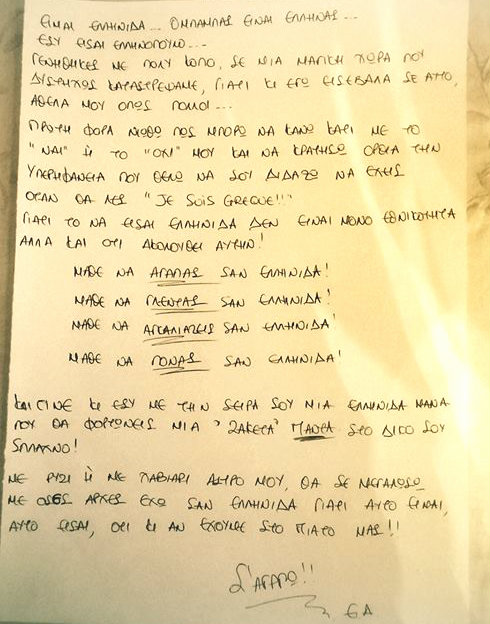 ΕΙΜΑΙ ΕΛΛΗΝΙΔΑ... Ο ΜΠΑΜΠΑΣ ΕΙΝΑΙ ΕΛΛΗΝΑΣ...
ΕΣΥ ΕΙΣΑΙ ΕΛΛΗΝΟΠΟΥΛΟ...
ΓΕΝΝΗΘΗΚΕΣ ΜΕ ΠΟΛΥ ΚΟΠΟ, ΣΕ ΜΙΑ ΜΑΓΙΚΗ ΧΩΡΑ ΠΟΥ
ΔΥΣΤΥΧΩΣ ΚΑΤΑΣΤΡΕΨΑΜΕ, ΓΙΑΤΙ ΚΙ ΕΓΩ ΕΙΣΕΒΑΛΑ ΣΕ ΑΥΤΟ,
ΑΘΕΛΑ ΜΟΥ ΟΠΩΣ ΠΟΛΛΟΙ...
ΠΡΩΤΗ ΦΟΡΑ ΝΙΩΘΩ ΠΩΣ ΜΠΟΡΩ ΝΑ ΚΑΝΩ ΚΑΤΙ ΜΕ ΤΟ
"ΝΑΙ" Ή ΤΟ "ΟΧΙ" ΜΟΥ ΚΑΙ ΝΑ ΚΡΑΤΗΣΩ ΟΡΘΙΑ ΤΗΝ
ΥΠΕΡΗΦΑΝΕΙΑ ΠΟΥ ΘΕΛΩ ΝΑ ΣΟΥ ΔΙΔΑΞΩ ΝΑ ΕΧΕΙΣ
ΟΤΑΝ ΘΑ ΛΕΣ "JE SUIS GREQUE!!"
ΓΙΑΤΙ ΤΟ ΝΑ ΕΙΣΑΙ ΕΛΛΗΝΙΔΑ ΔΕΝ ΕΙΝΑΙ ΜΟΝΟ ΕΘΝΙΚΟΤΗΤΑ
ΑΛΛΑ ΚΑΙ ΟΤΙ ΑΚΟΛΟΥΘΕΙ ΑΥΤΗΝ!
ΜΑΘΕ ΝΑ ΑΓΑΠΑΣ ΣΑΝ ΕΛΛΗΝΙΔΑ!
ΜΑΘΕ ΝΑ ΓΛΕΝΤΑΣ ΣΑΝ ΕΛΛΗΝΙΔΑ!
ΜΑΘΕ ΝΑ ΑΓΚΑΛΙΑΖΕΙΣ ΣΑΝ ΕΛΛΗΝΙΔΑ!
ΜΑΘΕ ΝΑ ΠΟΝΑΣ ΣΑΝ ΕΛΛΗΝΙΔΑ!
ΚΑΙ ΓΙΝΕ ΚΙ ΕΣΥ ΜΕ ΤΗΝ ΣΕΙΡΑ ΣΟΥ ΜΙΑ ΕΛΛΗΝΙΔΑ ΜΑΝΑ
ΠΟΥ ΘΑ ΦΟΡΤΩΝΕΙΣ ΜΙΑ "ΖΑΚΕΤΑ" ΠΑΝΤΑ ΣΤΟ ΔΙΚΟ ΣΟΥ
ΣΠΛΑΧΝΟ!
ΜΕ ΡΥΖΙ Ή ΜΕ ΧΑΒΙΑΡΙ ΑΣΤΡΟ ΜΟΥ, ΘΑ ΣΕ ΜΕΓΑΛΩΣΩ
ΜΕ ΟΣΕΣ ΑΡΧΕΣ ΕΧΩ ΣΑΝ ΕΛΛΗΝΙΔΑ ΓΙΑΤΙ ΑΥΤΟ ΕΙΜΑΙ,
ΑΥΤΟ ΕΙΣΑΙ, ΟΤΙ ΚΙ ΑΝ ΕΧΟΥΜΕ ΣΤΟ ΠΙΑΤΟ ΜΑΣ!!
Σ'ΑΓΑΠΩ!!
ΕΑ